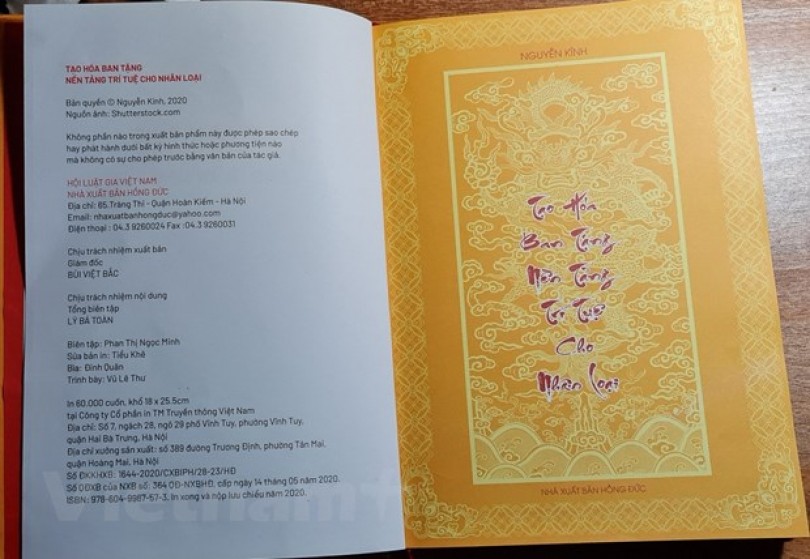 TẠO HÓA BAN TẶNG
NỀN TẢNG TRÍ TUỆ CHO NHÂN LOẠI
Bản quyền © Nguyễn Kình, 2020
Nguồn ảnh: Shutterstock.com
Không phần nào trong xuất bản phẩm này được phép sao chép
hay phát hành dưới bất kỳ hình thức hoặc phương tiện nào
mà không có sự cho phép trước bằng văn bản của tác giả.
HỘI LUẬT GIA VIỆT NAM
NHÀ XUẤT BẢN HỒNG ĐỨC
Địa chỉ: 65.Tràng Thi - Quận Hoàn Kiếm - Hà Nội
Email: nhaxuatbanhongduc@yahoo.com
Điện thoại : 04.3 9260024 Fax :04.3 9260031
Chịu trách nhiệm xuất bản
Giám đốc
BÙI VIỆT BẮC
Chịu trách nhiệm nội dung
Tổng biên tập
LÝ BÁ TOÀN
Biên tập: Phan Thị Ngọc Minh
Sửa bản in: Tiểu Khê
Bìa: Đinh Quân
Trình bày: Vũ Lê Thư
In 60.000 cuốn, khổ 18 x 25.5cm
tại Công ty Cổ phần in TM Truyền thông Việt Nam
Địa chỉ: Số 7, ngách 28, ngõ 29 phố Vĩnh Tuy, phường Vĩnh Tuy,
quận Hai Bà Trưng, Hà Nội
Địa chỉ xưởng sản xuất: số 389 đường Trương Định, phường Tân Mai,
quận Hoàng Mai, Hà Nội
Số ĐKKHXB: 1644-2020/CXBIPH/28-23/HĐ
Số QĐXB của NXB số: 364 QĐ-NXBHĐ, cấp ngày 14 tháng 05 năm 2020.
ISBN: 978-604-9987-57-3. In xong và nộp lưu chiểu năm 2020.
Vietnam+
NGUYỄN KÌNH
Tạo Hóa
Ban Tặng
Nền Tảng
Trí Tuệ
Cho
Nhân Loại
NHÀ XUẤT BẢN HỒNG ĐỨC